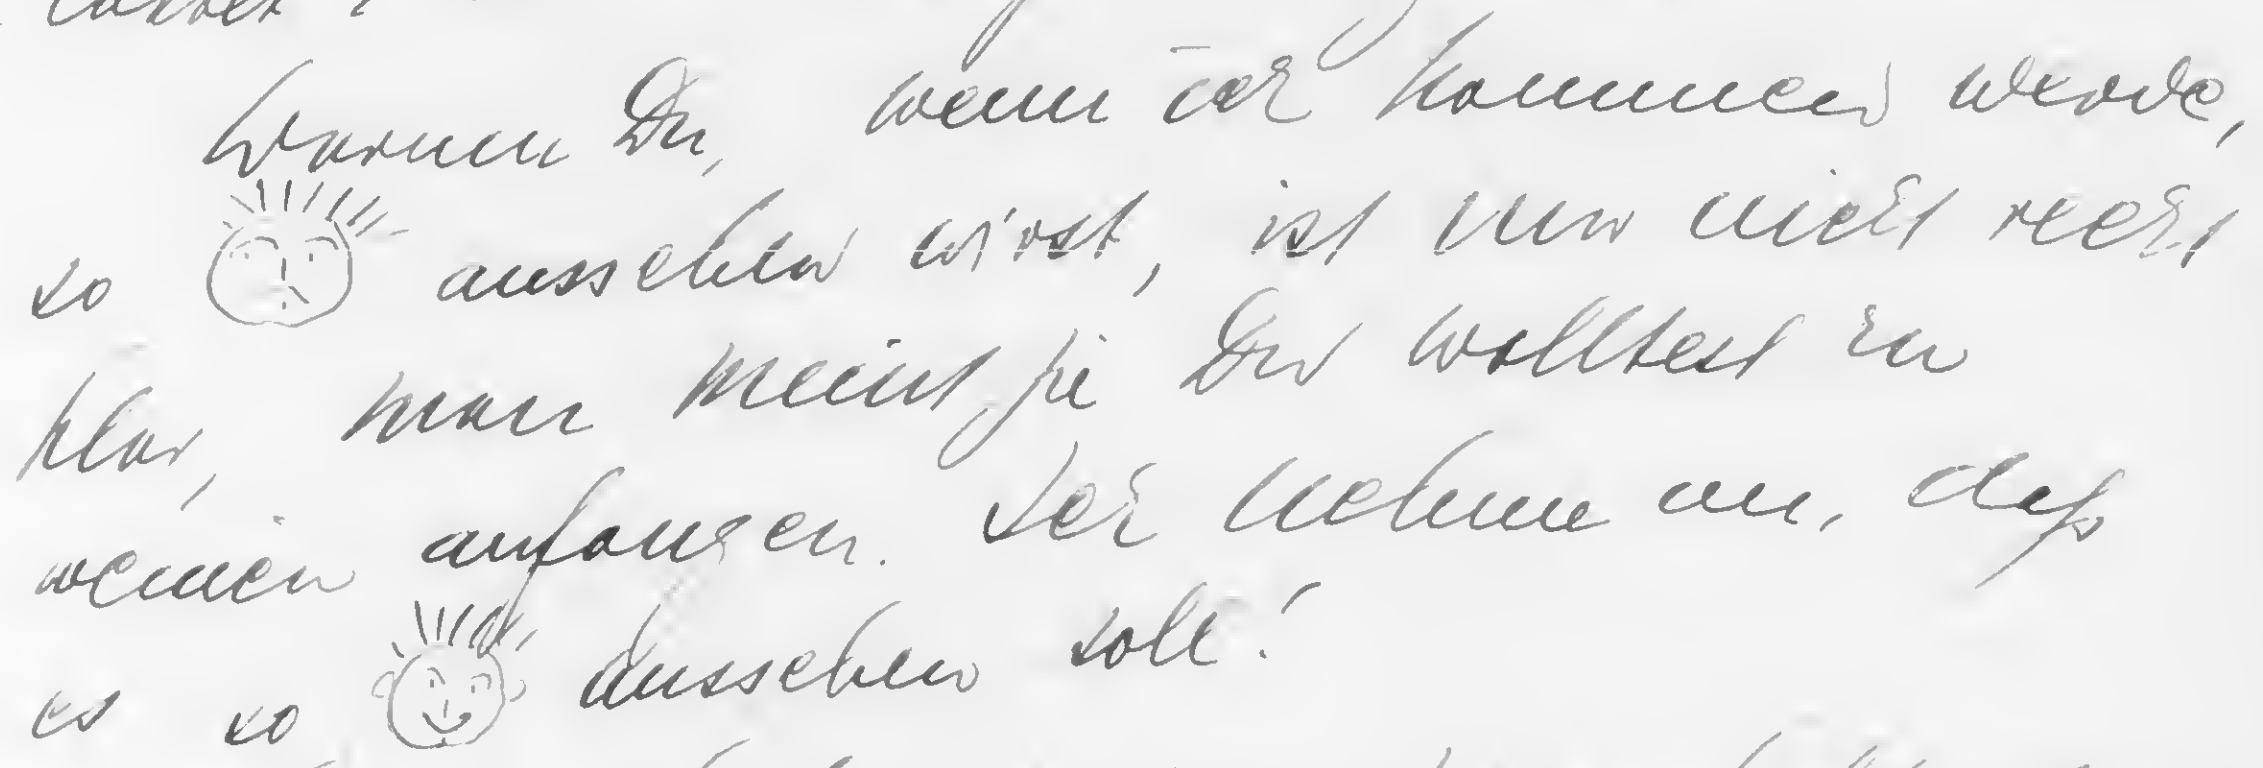 Warum Du, wenn ich kommen werde,
so aussehen wirst, ist mir nicht recht
klar, man meint, Du wolltest zu
weinen anfangen. Ich nehme an, daß
es so aussehen soll!